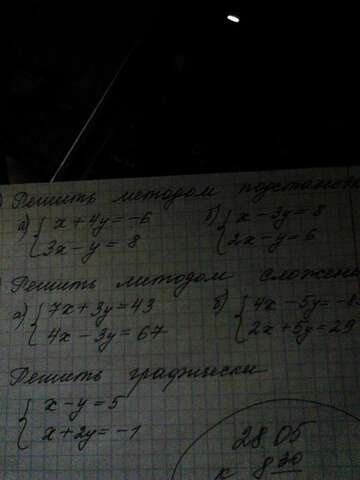 ) Решить методом подстанов
а) { x + 4y = -6   б) { x - 3y = 8
3x - y = 8   2x - y = 6
) Решить методом сложени
а) { 7x + 3y = 43   б) { 4x - 5y = -8
4x - 3y = 67   2x + 5y = 29
Решить графически
{ x - y = 5
x + 2y = -1
28 05
к 8 30